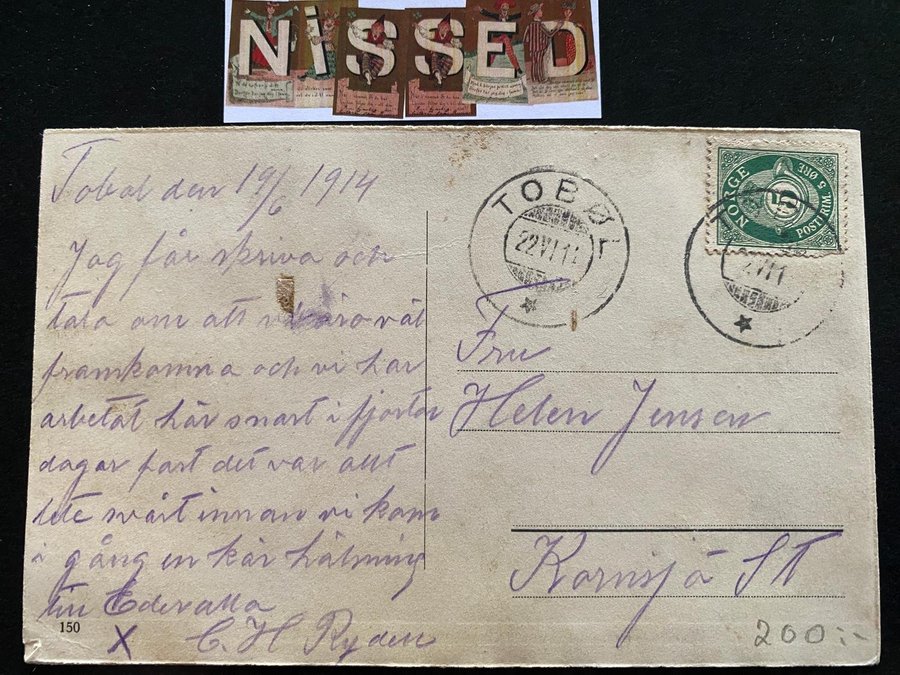 NiSSED
Tobøl den 19/6 1914
Jag får skriva och
tala om att vi äro väl
framkomna och vi har
arbetat här snart i fjorton
dagar fast det var allt
lite svårt innan vi kom
i gång en kär hälsning
till Eder alla
X C. H. Ryden
150
TOBØL
22 VI 14
NORGE
POSTFRIM. 5 ØRE
Fru
Helen Jensen
Kornsjö ST
200:-